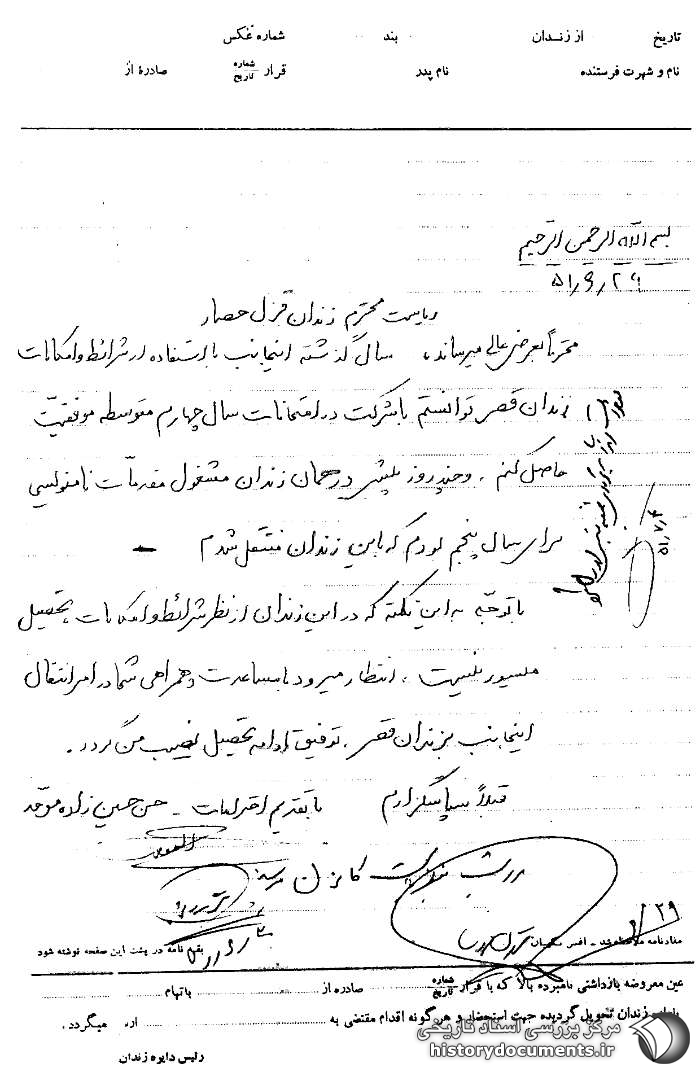 تاریخ از زندان بند شماره عکس
نام و شهرت فرستنده نام پدر قرار شماره تاریخ صادره از
بسم الله الرحمن الرحیم
۵۱٫۶٫۲۹
ریاست محترم زندان قزل حصار
محترماً بعرض عالی میرساند، سال گذشته اینجانب با استفاده از شرائط و امکانات
زندان قصر توانستم با شرکت در امتحانات سال چهارم متوسطه موفقیت
حاصل کنم. و چند روز پیش در همان زندان مشغول مقدمات نامنویسی
برای سال پنجم بودم که باین زندان منتقل شدم
با توجه به این نکته که در این زندان از نظر شرائط و امکانات، تحصیل
میسور نیست، انتظار میرود با مساعدت و همراهی شما در امر انتقال
اینجانب بزندان قصر، توفیق ادامه تحصیل نصیب من گردد.
قبلاً سپاسگزارم با تقدیم احترامات - حسن حسین زاده موحد
۵۱٫۷٫۴
۶/۲۹
مفادنامه ملاحظه شد - افسر نگهبان بقیه نامه در پشت این صفحه نوشته شود
عین معروضه بازداشتی نامبرده بالا که با قرار شماره تاریخ صادره از باتهام
زندان تحویل گردیده جهت استحضار و هرگونه اقدام مقتضی به میگردد.
رئیس دایره زندان
مرکز بررسی اسناد تاریخی
historydocuments.ir